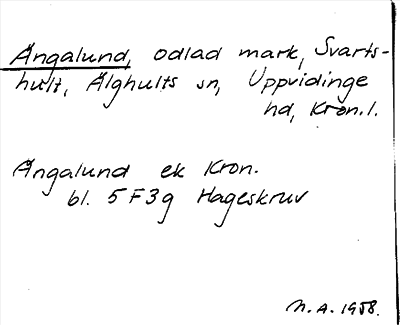 Ängalund, odlad mark, Svarts-
hult, Älghults sn, Uppvidinge
hd, Kron.l.
Ängalund ek Kron.
bl. 5F3g Hageskruv
N.A. 1958.